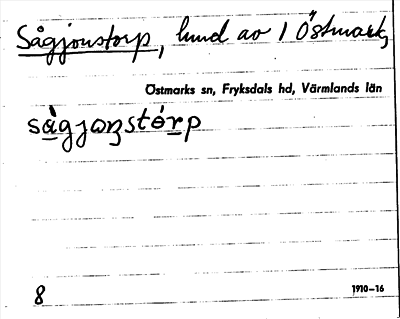 Sågjonstorp, lund av 1 Östmark,
Östmarks sn, Fryksdals hd, Värmlands län
8
1910–16